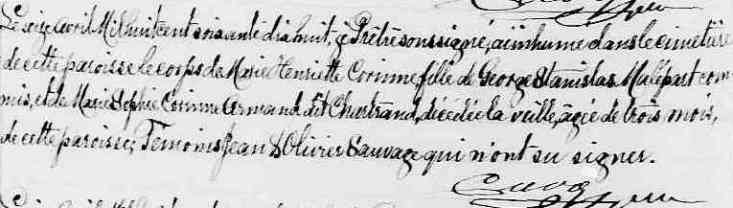 Le seize avril Mil huit cent soixante dix huit, je Prêtre soussigné, ai inhumé dans le cimetière
de cette paroisse le corps de Marie Henriette Corinne fille de George Stanislas Malépart com-
mis, et de Marie Sophie Corinne Armand dit Chartrand, décédée la veille, agée de trois mois,
de cette paroisse; Témoins Jean & Olivier Sauvage qui n'ont su signer.